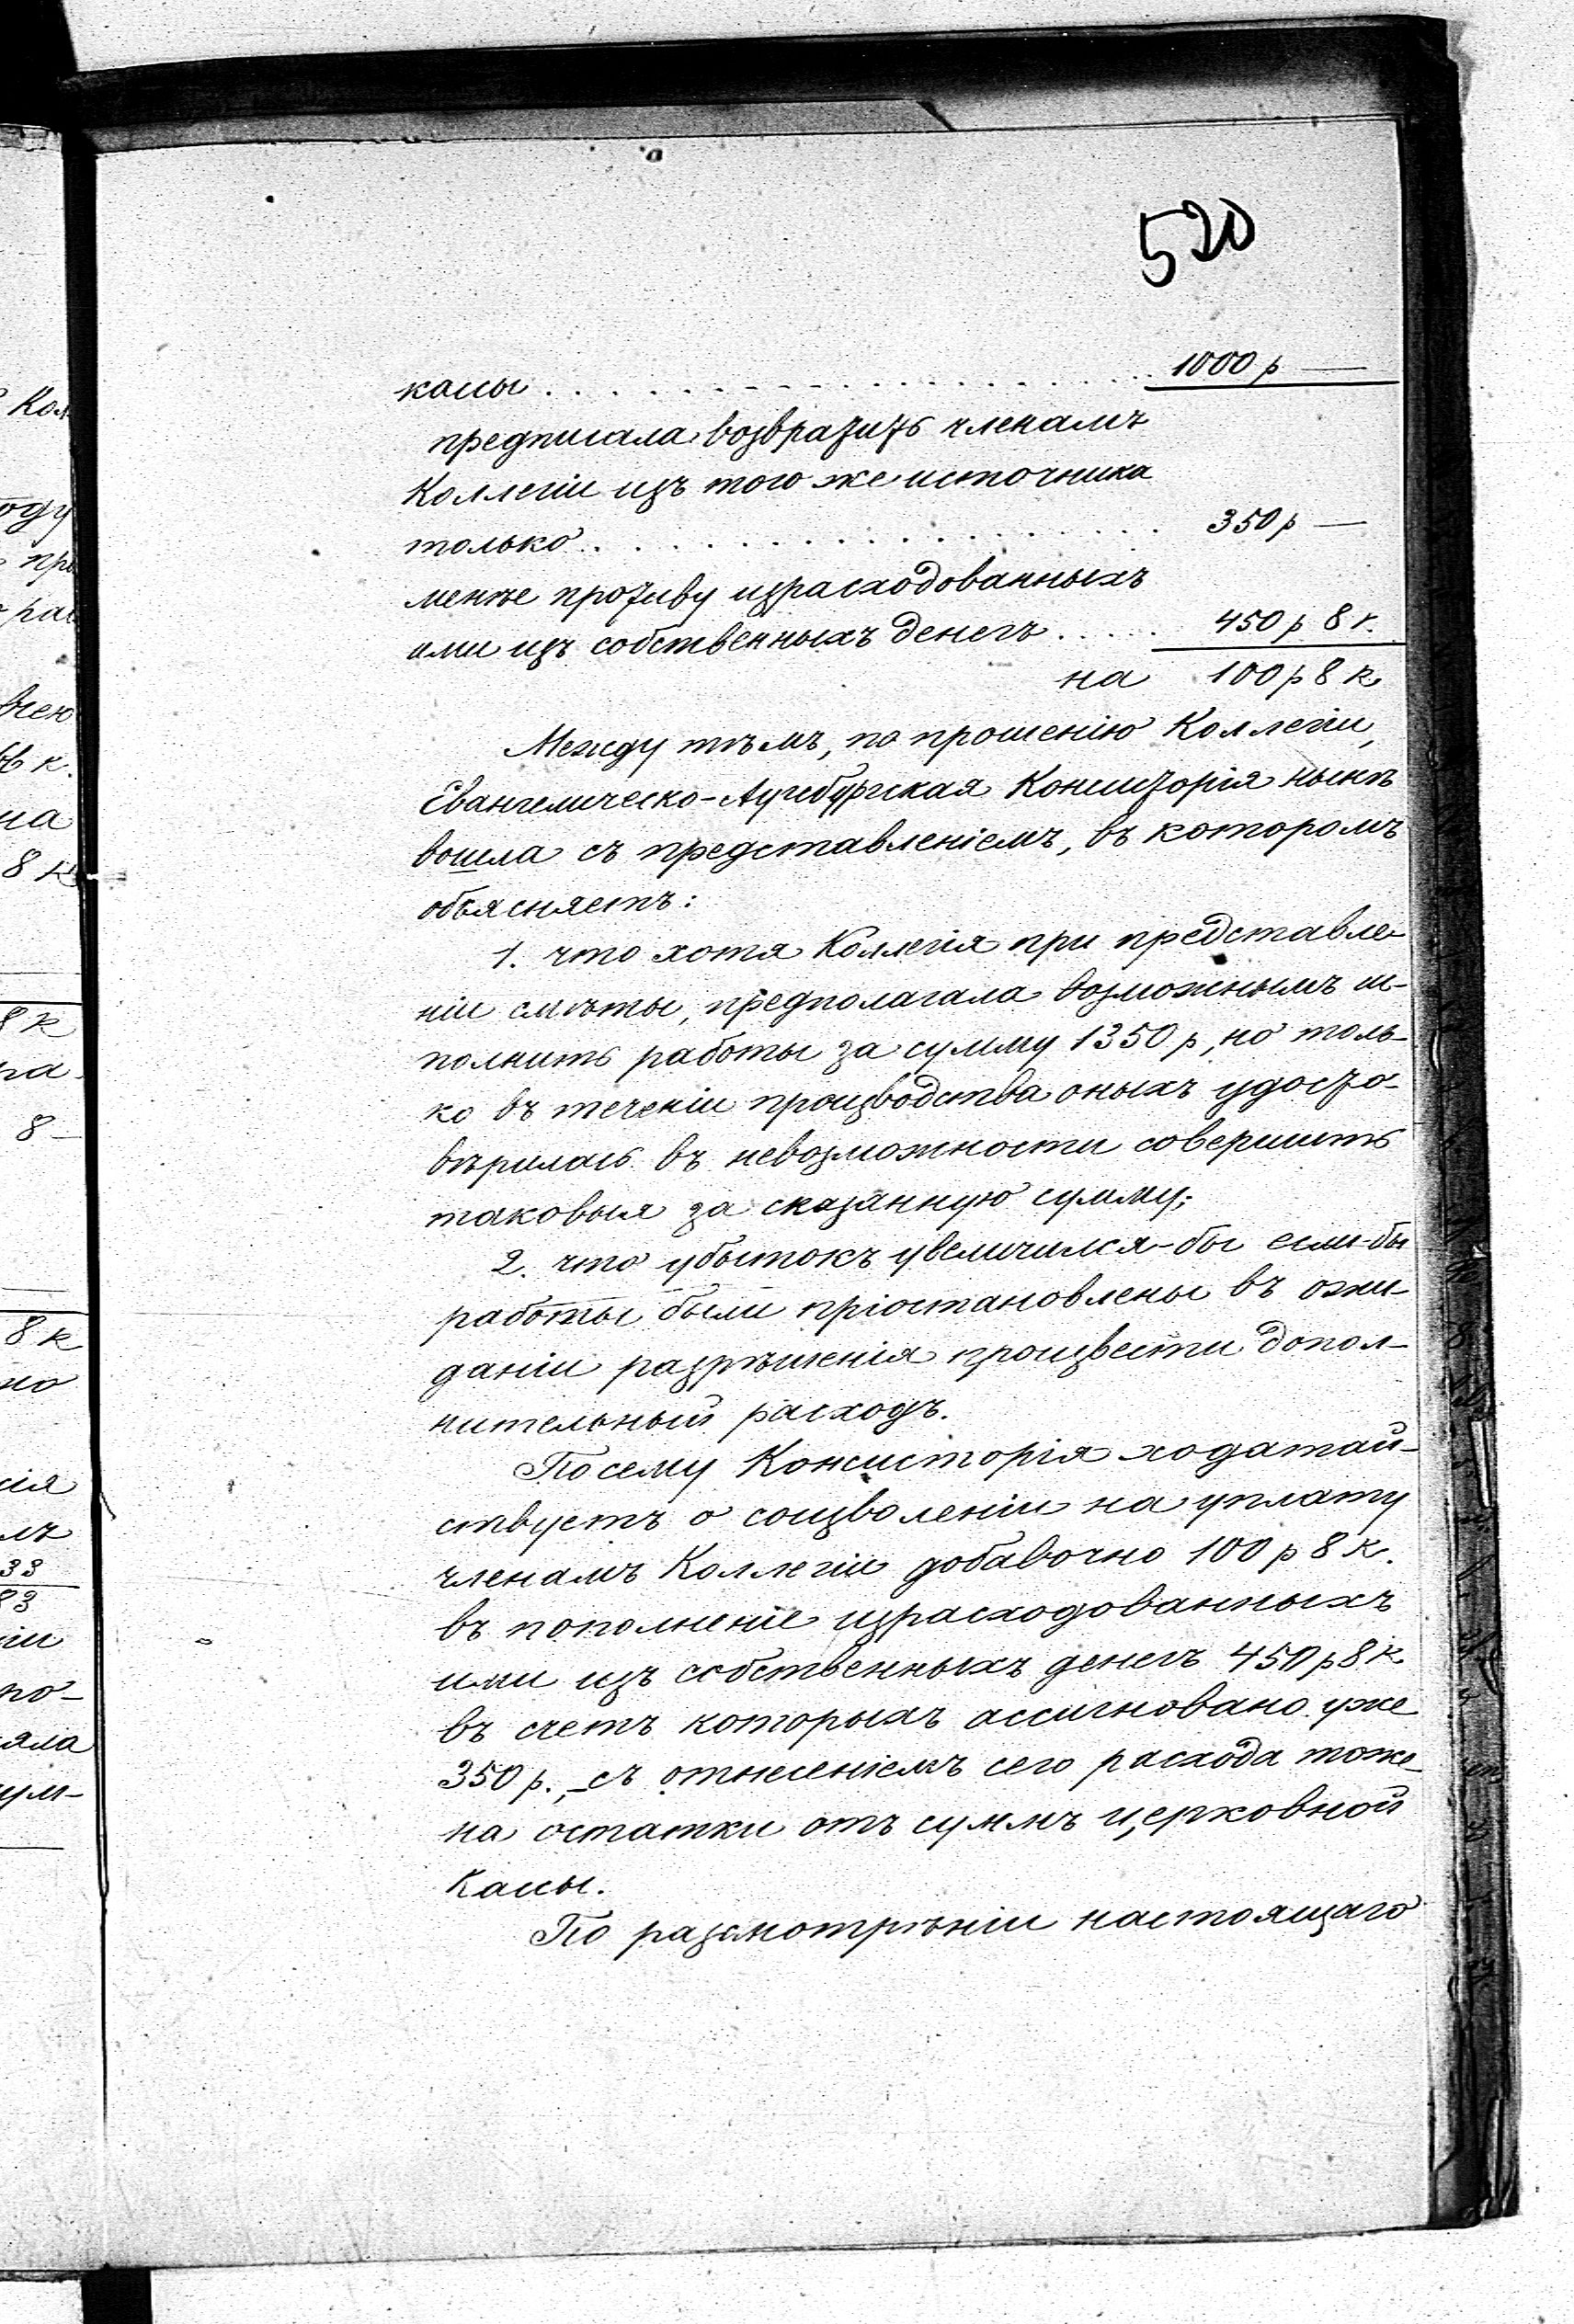 520
касы . . . . . . . . . . . . . . . . . . 1000 р —
предписала возвратить членамъ
Коллегіи изъ того же источника
только . . . . . . . . . . . . . . . . . 350 р —
менѣе противу израсходованныхъ
ими изъ собственныхъ денегъ . . . . . 450 р 8 к.
на 100 р 8 к
Между тѣмъ, по прошенію Коллегіи,
Евангелическо-Аугсбургская Консисторія нынѣ
вошла съ представленіемъ, въ которомъ
объясняетъ:
1. что хотя Коллегія при представле-
ніи смѣты, предполагала возможнымъ ис-
полнить работы за сумму 1350 р, но толь-
ко въ теченіи производства оныхъ удосто-
вѣрилась въ невозможности совершить
таковыя за сказанную сумму;
2. что убытокъ увеличился-бы если-бы
работы были пріостановлены въ ожи-
даніи разрѣшенія произвести допол-
нительный расходъ.
Посему Консисторія ходатай-
ствуетъ о соизволеніи на уплату
членамъ Коллегіи добавочно 100 р 8 к.
въ пополненіе израсходованныхъ
ими изъ собственныхъ денегъ 450 р 8 к
въ счетъ которыхъ ассигновано уже
350 р., – съ отнесеніемъ сего расхода тоже
на остатки отъ суммъ церковной
Касы.
По разсмотрѣніи настоящаго